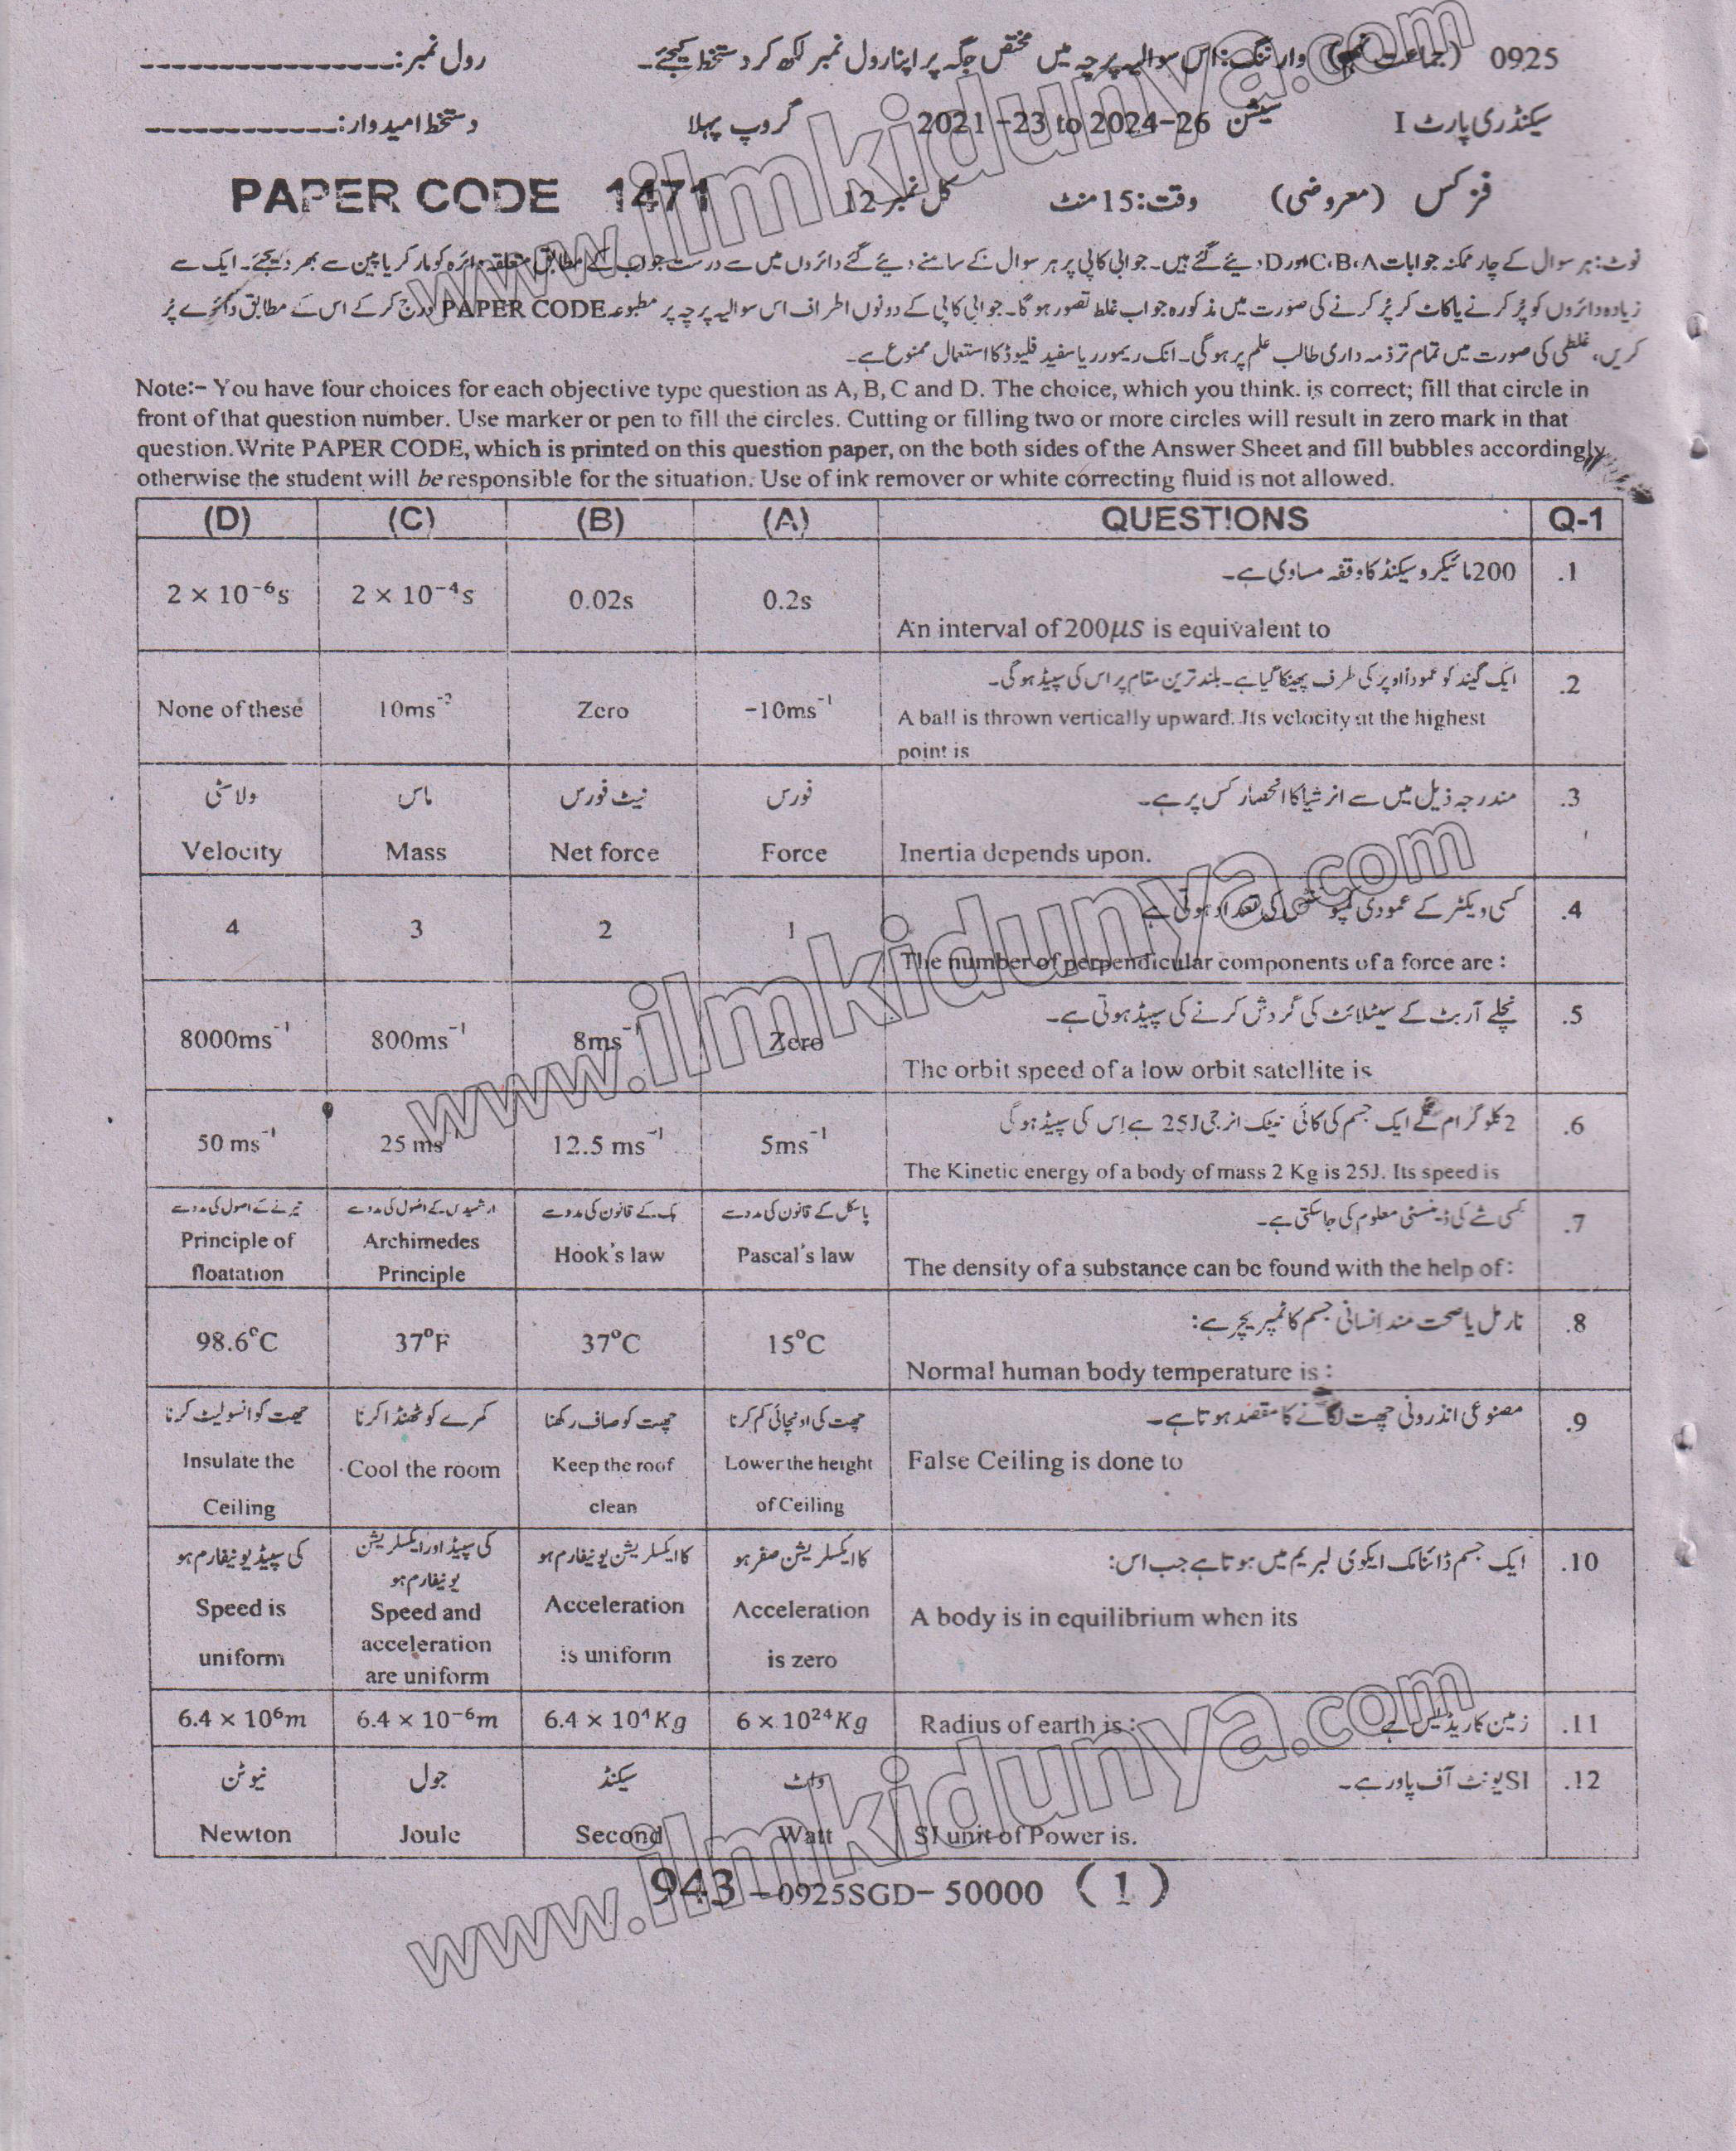 0925 (جماعت نہم) وارننگ: اس سوالیہ پرچہ میں مختص جگہ پر اپنا رول نمبر لکھ کر دستخط کیجئے۔ رول نمبر: ----------------
سیکنڈری پارٹ I سیشن 2021-23 to 2024-26 گروپ پہلا دستخط امیدوار: -------------
فزکس (معروضی) وقت: 15 منٹ کل نمبر 12 PAPER CODE 1471
نوٹ: ہر سوال کے چار ممکنہ جوابات C، B، A اور D دیئے گئے ہیں۔ جوابی کاپی پر ہر سوال کے سامنے دیئے گئے دائروں میں سے درست جواب کے مطابق متعلقہ دائرہ کو مارکر یا پین سے بھر دیجئے۔ ایک سے
زیادہ دائروں کو پُر کرنے یا کاٹ کر پُر کرنے کی صورت میں مذکورہ جواب غلط تصور ہو گا۔ جوابی کاپی کے دونوں اطراف اس سوالیہ پرچہ پر مطبوعہ PAPER CODE درج کر کے اس کے مطابق دائرے پُر
کریں، غلطی کی صورت میں تمام تر ذمہ داری طالب علم پر ہو گی۔ انک ریمور ر یا سفید فلیوڈ کا استعمال ممنوع ہے۔
Note:- You have four choices for each objective type question as A, B, C and D. The choice, which you think. is correct; fill that circle in
front of that question number. Use marker or pen to fill the circles. Cutting or filling two or more circles will result in zero mark in that
question.Write PAPER CODE, which is printed on this question paper, on the both sides of the Answer Sheet and fill bubbles accordingly,
otherwise the student will be responsible for the situation. Use of ink remover or white correcting fluid is not allowed.
(D) (C) (B) (A) QUESTIONS Q-1
200 مائیکرو سیکنڈ کا وقفہ مساوی ہے۔ .1
2 × 10⁻⁶s 2 × 10⁻⁴s 0.02s 0.2s
An interval of 200μs is equivalent to
ایک گیند کو عموداً اوپر کی طرف پھینکا گیا ہے۔ بلند ترین مقام پر اس کی سپیڈ ہو گی۔ .2
None of these 10ms⁻² Zero -10ms⁻¹ A ball is thrown vertically upward. Its velocity at the highest
point is
ولاسٹی ماس نیٹ فورس فورس مندرجہ ذیل میں سے انرشیا کا انحصار کس پر ہے۔ .3
Velocity Mass Net force Force Inertia depends upon.
کسی ویکٹر کے عمودی کمپوننٹس کی تعداد ہوتی ہے .4
4 3 2 1
The number of perpendicular components of a force are :
نچلے آربٹ کے سیٹلائٹ کی گردش کرنے کی سپیڈ ہوتی ہے۔ .5
8000ms⁻¹ 800ms⁻¹ 8ms⁻¹ Zero
The orbit speed of a low orbit satellite is
2 کلو گرام کے ایک جسم کی کائی نیٹک انرجی 25J ہے اِس کی سپیڈ ہو گی .6
50 ms⁻¹ 25 ms⁻¹ 12.5 ms⁻¹ 5ms⁻¹
The Kinetic energy of a body of mass 2 Kg is 25J. Its speed is
تیرنے کے اصول کی مدد سے ارشمیدس کے اصول کی مدد سے ہک کے قانون کی مدد سے پاسکل کے قانون کی مدد سے کسی شے کی ڈینسٹی معلوم کی جا سکتی ہے۔ .7
Principle of Archimedes Hook's law Pascal's law
floatation Principle The density of a substance can be found with the help of:
نارمل یا صحت مند اِنسانی جسم کا ٹمپریچر ہے: .8
98.6°C 37°F 37°C 15°C
Normal human body temperature is :
چھت کو انسولیٹ کرنا کمرے کو ٹھنڈا کرنا چھت کو صاف رکھنا چھت کی اونچائی کم کرنا مصنوعی انڈرونی چھت لگانے کا مقصد ہوتا ہے۔ .9
Insulate the Cool the room Keep the roof Lower the height False Ceiling is done to
Ceiling clean of Ceiling
کی سپیڈ یونیفارم ہو کی سپیڈ اور ایکسلریشن کا ایکسلریشن یونیفارم ہو کا ایکسلریشن صفر ہو ایک جسم ڈائنامک ایکوی لبریم میں ہوتا ہے جب اس: .10
یونیفارم ہو
Speed is Speed and Acceleration Acceleration A body is in equilibrium when its
uniform acceleration is uniform is zero
are uniform
6.4 × 10⁶m 6.4 × 10⁻⁶m 6.4 × 10⁴Kg 6 × 10²⁴Kg Radius of earth is : زمین کا ریڈیئس ہے .11
نیوٹن جول سیکنڈ واٹ SI یونٹ آف پاور ہے۔ .12
Newton Joule Second Watt SI unit of Power is.
943 -0925SGD- 50000 (1)
www.ilmkidunya.com
www.ilmkidunya.com
www.ilmkidunya.com